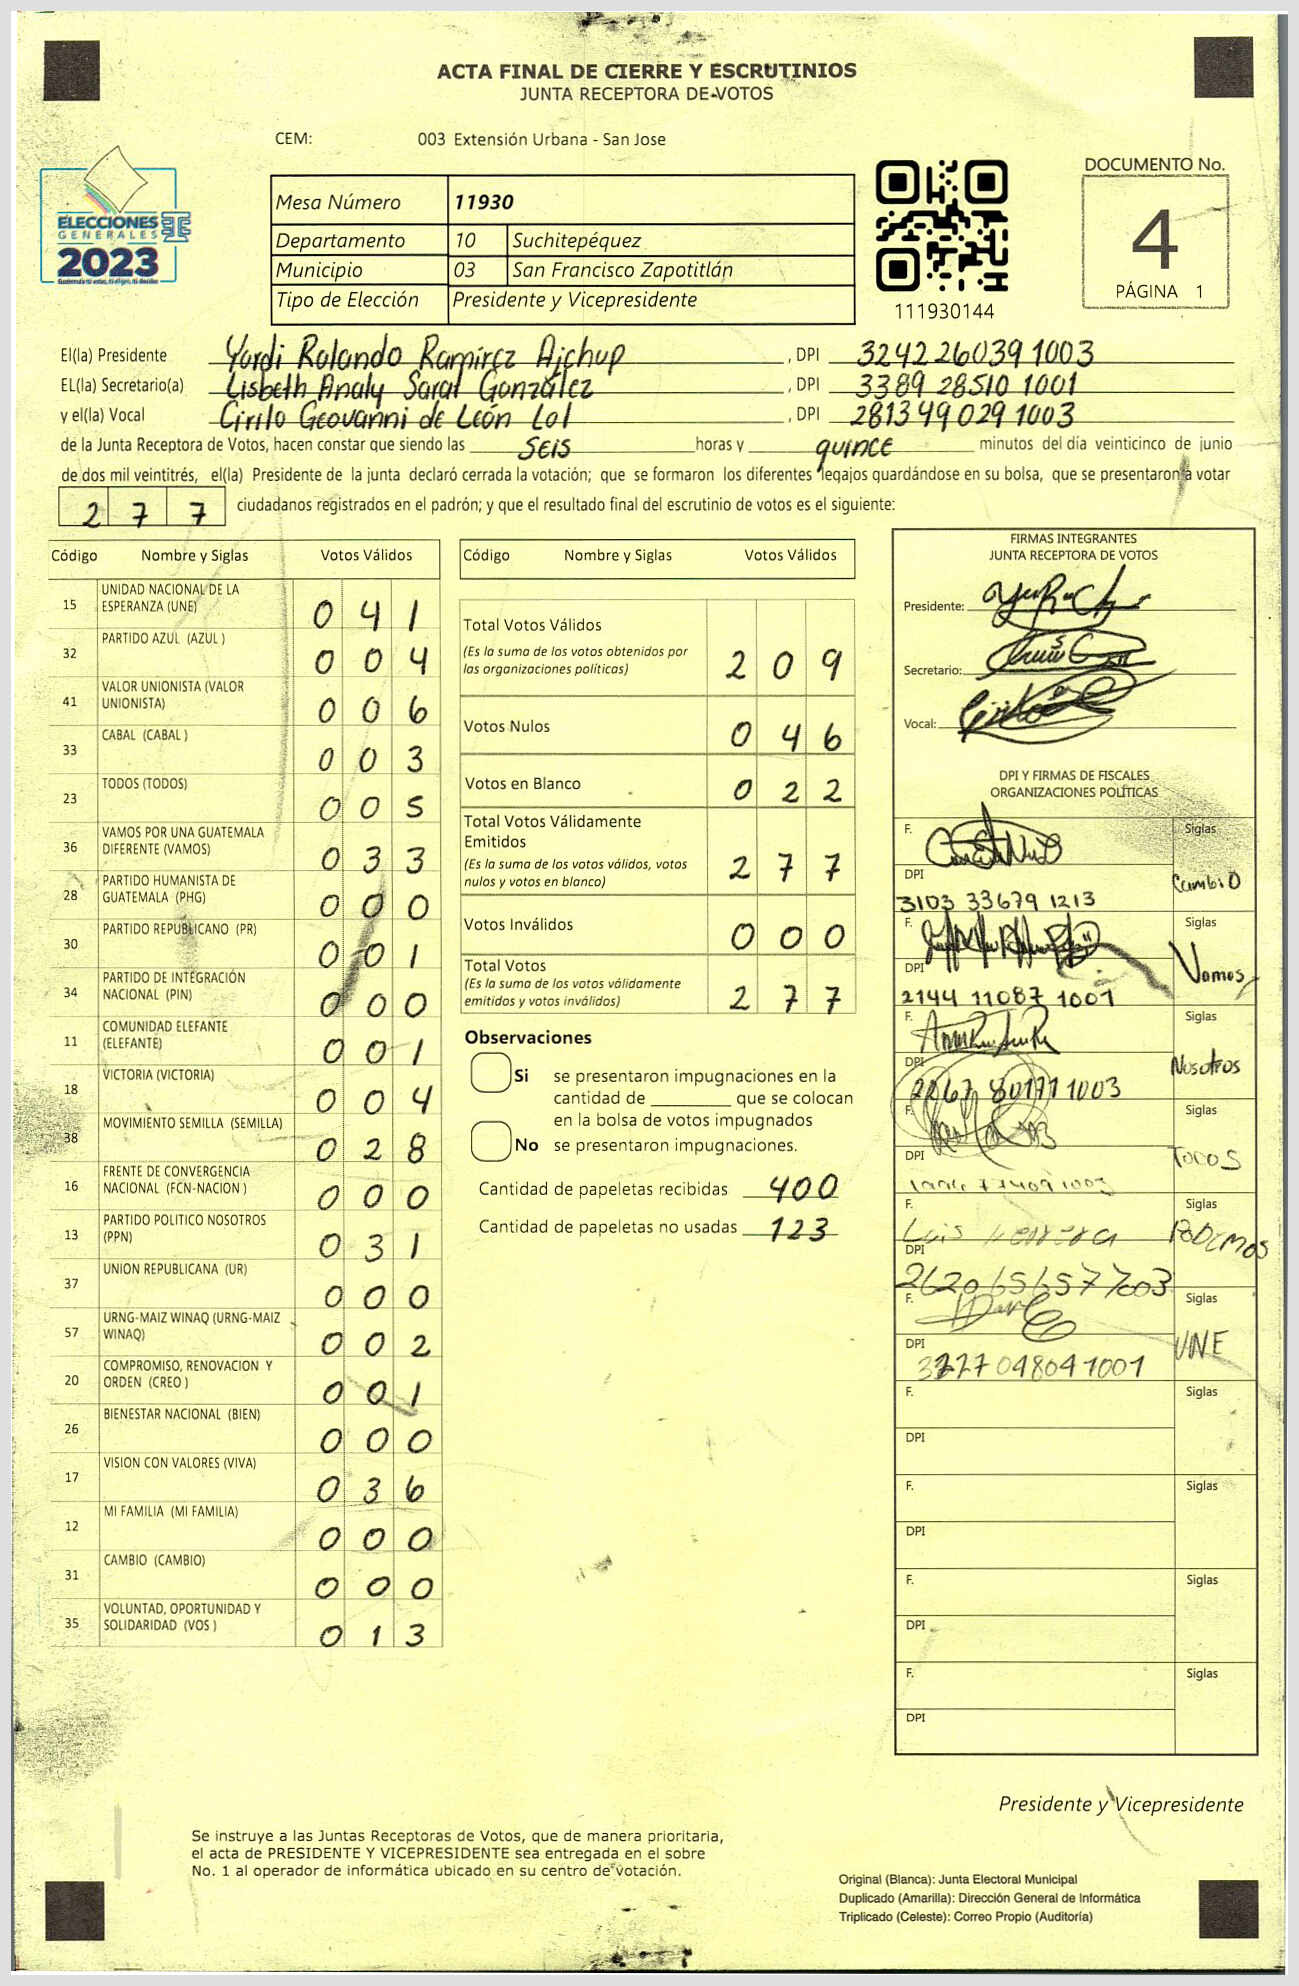 ACTA FINAL DE CIERRE Y ESCRUTINIOS
JUNTA RECEPTORA DE VOTOS
CEM: 003 Extensión Urbana - San Jose
ELECCIONES
GENERALES
2023
Mesa Número 11930
Departamento 10 Suchitepéquez
Municipio 03 San Francisco Zapotitlán
Tipo de Elección Presidente y Vicepresidente
111930144
DOCUMENTO No.
4
PÁGINA 1
El(la) Presidente Yordi Rolando Ramírez Ajchup, DPI 3242 26039 1003
EL(la) Secretario(a) Lisbeth Analy Saral González, DPI 3389 28510 1001
y el(la) Vocal Cirilo Geovanni de León Lol, DPI 2813 49029 1003
de la Junta Receptora de Votos, hacen constar que siendo las SEIS horas y quince minutos del día veinticinco de junio
de dos mil veintitrés, el(la) Presidente de la junta declaró cerrada la votación; que se formaron los diferentes legajos guardándose en su bolsa, que se presentaron a votar
277 ciudadanos registrados en el padrón; y que el resultado final del escrutinio de votos es el siguiente:
Código Nombre y Siglas Votos Válidos
15 UNIDAD NACIONAL DE LA ESPERANZA (UNE) 041
32 PARTIDO AZUL (AZUL ) 004
41 VALOR UNIONISTA (VALOR UNIONISTA) 006
33 CABAL (CABAL ) 003
23 TODOS (TODOS) 005
36 VAMOS POR UNA GUATEMALA DIFERENTE (VAMOS) 033
28 PARTIDO HUMANISTA DE GUATEMALA (PHG) 000
30 PARTIDO REPUBLICANO (PR) 001
34 PARTIDO DE INTEGRACIÓN NACIONAL (PIN) 000
11 COMUNIDAD ELEFANTE (ELEFANTE) 001
18 VICTORIA (VICTORIA) 004
38 MOVIMIENTO SEMILLA (SEMILLA) 028
16 FRENTE DE CONVERGENCIA NACIONAL (FCN-NACION ) 000
13 PARTIDO POLITICO NOSOTROS (PPN) 031
37 UNION REPUBLICANA (UR) 000
57 URNG-MAIZ WINAQ (URNG-MAIZ WINAQ) 002
20 COMPROMISO, RENOVACION Y ORDEN (CREO ) 001
26 BIENESTAR NACIONAL (BIEN) 000
17 VISION CON VALORES (VIVA) 036
12 MI FAMILIA (MI FAMILIA) 000
31 CAMBIO (CAMBIO) 000
35 VOLUNTAD, OPORTUNIDAD Y SOLIDARIDAD (VOS ) 013
Código Nombre y Siglas Votos Válidos
Total Votos Válidos
(Es la suma de los votos obtenidos por
las organizaciones políticas) 209
Votos Nulos 046
Votos en Blanco 022
Total Votos Válidamente
Emitidos
(Es la suma de los votos válidos, votos
nulos y votos en blanco) 277
Votos Inválidos 000
Total Votos
(Es la suma de los votos válidamente
emitidos y votos inválidos) 277
Observaciones
Si se presentaron impugnaciones en la
cantidad de ________ que se colocan
en la bolsa de votos impugnados
No se presentaron impugnaciones.
Cantidad de papeletas recibidas 400
Cantidad de papeletas no usadas 123
FIRMAS INTEGRANTES
JUNTA RECEPTORA DE VOTOS
Presidente:
Secretario:
Vocal:
DPI Y FIRMAS DE FISCALES
ORGANIZACIONES POLÍTICAS
F. Siglas
DPI Cambio
3103 33679 1213
F. Siglas
DPI Vamos
2144 11087 1001
F. Siglas
DPI Nosotros
2267 80177 1003
F. Siglas
DPI TODOS
F. Luis Herrera Siglas
DPI PODEMOS
2620656577003
F. Siglas
DPI UNE
3227 04804 1001
F. Siglas
DPI
F. Siglas
DPI
F. Siglas
DPI
F. Siglas
DPI
Presidente y Vicepresidente
Se instruye a las Juntas Receptoras de Votos, que de manera prioritaria,
el acta de PRESIDENTE Y VICEPRESIDENTE sea entregada en el sobre
No. 1 al operador de informática ubicado en su centro de votación.
Original (Blanca): Junta Electoral Municipal
Duplicado (Amarilla): Dirección General de Informática
Triplicado (Celeste): Correo Propio (Auditoría)